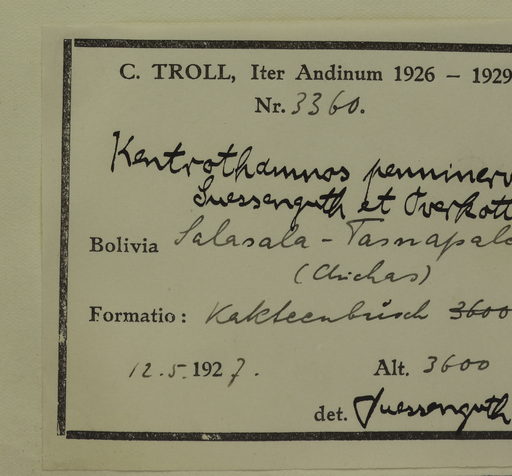 C. TROLL, Iter Andinum 1926 – 1929
Nr. 3360.
Kentrothamnus penninerv
Suessenguth et Overkott
Bolivia Salasala - Tasnapalc
(Chichas)
Formatio: Kakteenbüsch 3600
12.5.1927. Alt. 3600
det. Suessenguth